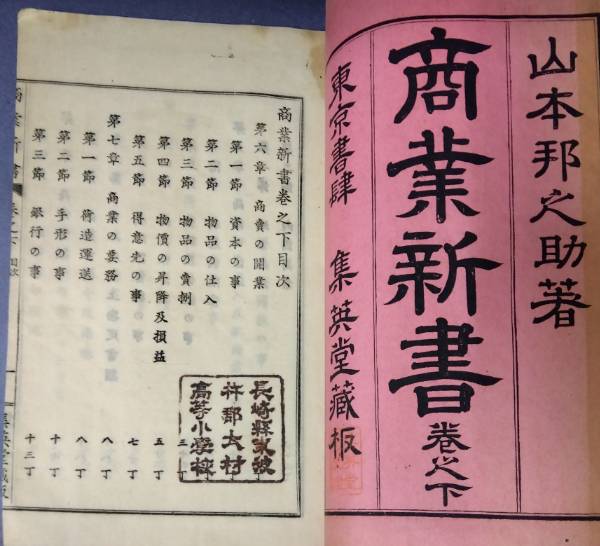 山本邦之助著
商業新書 巻之下
東京書肆 集英堂藏板
商業新書巻之下目次
第六章 商賣の開業
第一節 資本の事
第二節 物品の仕入
第三節 物品の賣捌 三丁
第四節 物價の昇降及損益 五丁
第五節 得意先の事 七丁
第七章 商業の要務 八丁
第一節 荷造運送 八丁
第二節 手形の事 十丁
第三節 銀行の事 十三丁
長崎縣東彼
杵郡大村
高等小學校
商業新書 巻之下 目次 一 集英堂藏版